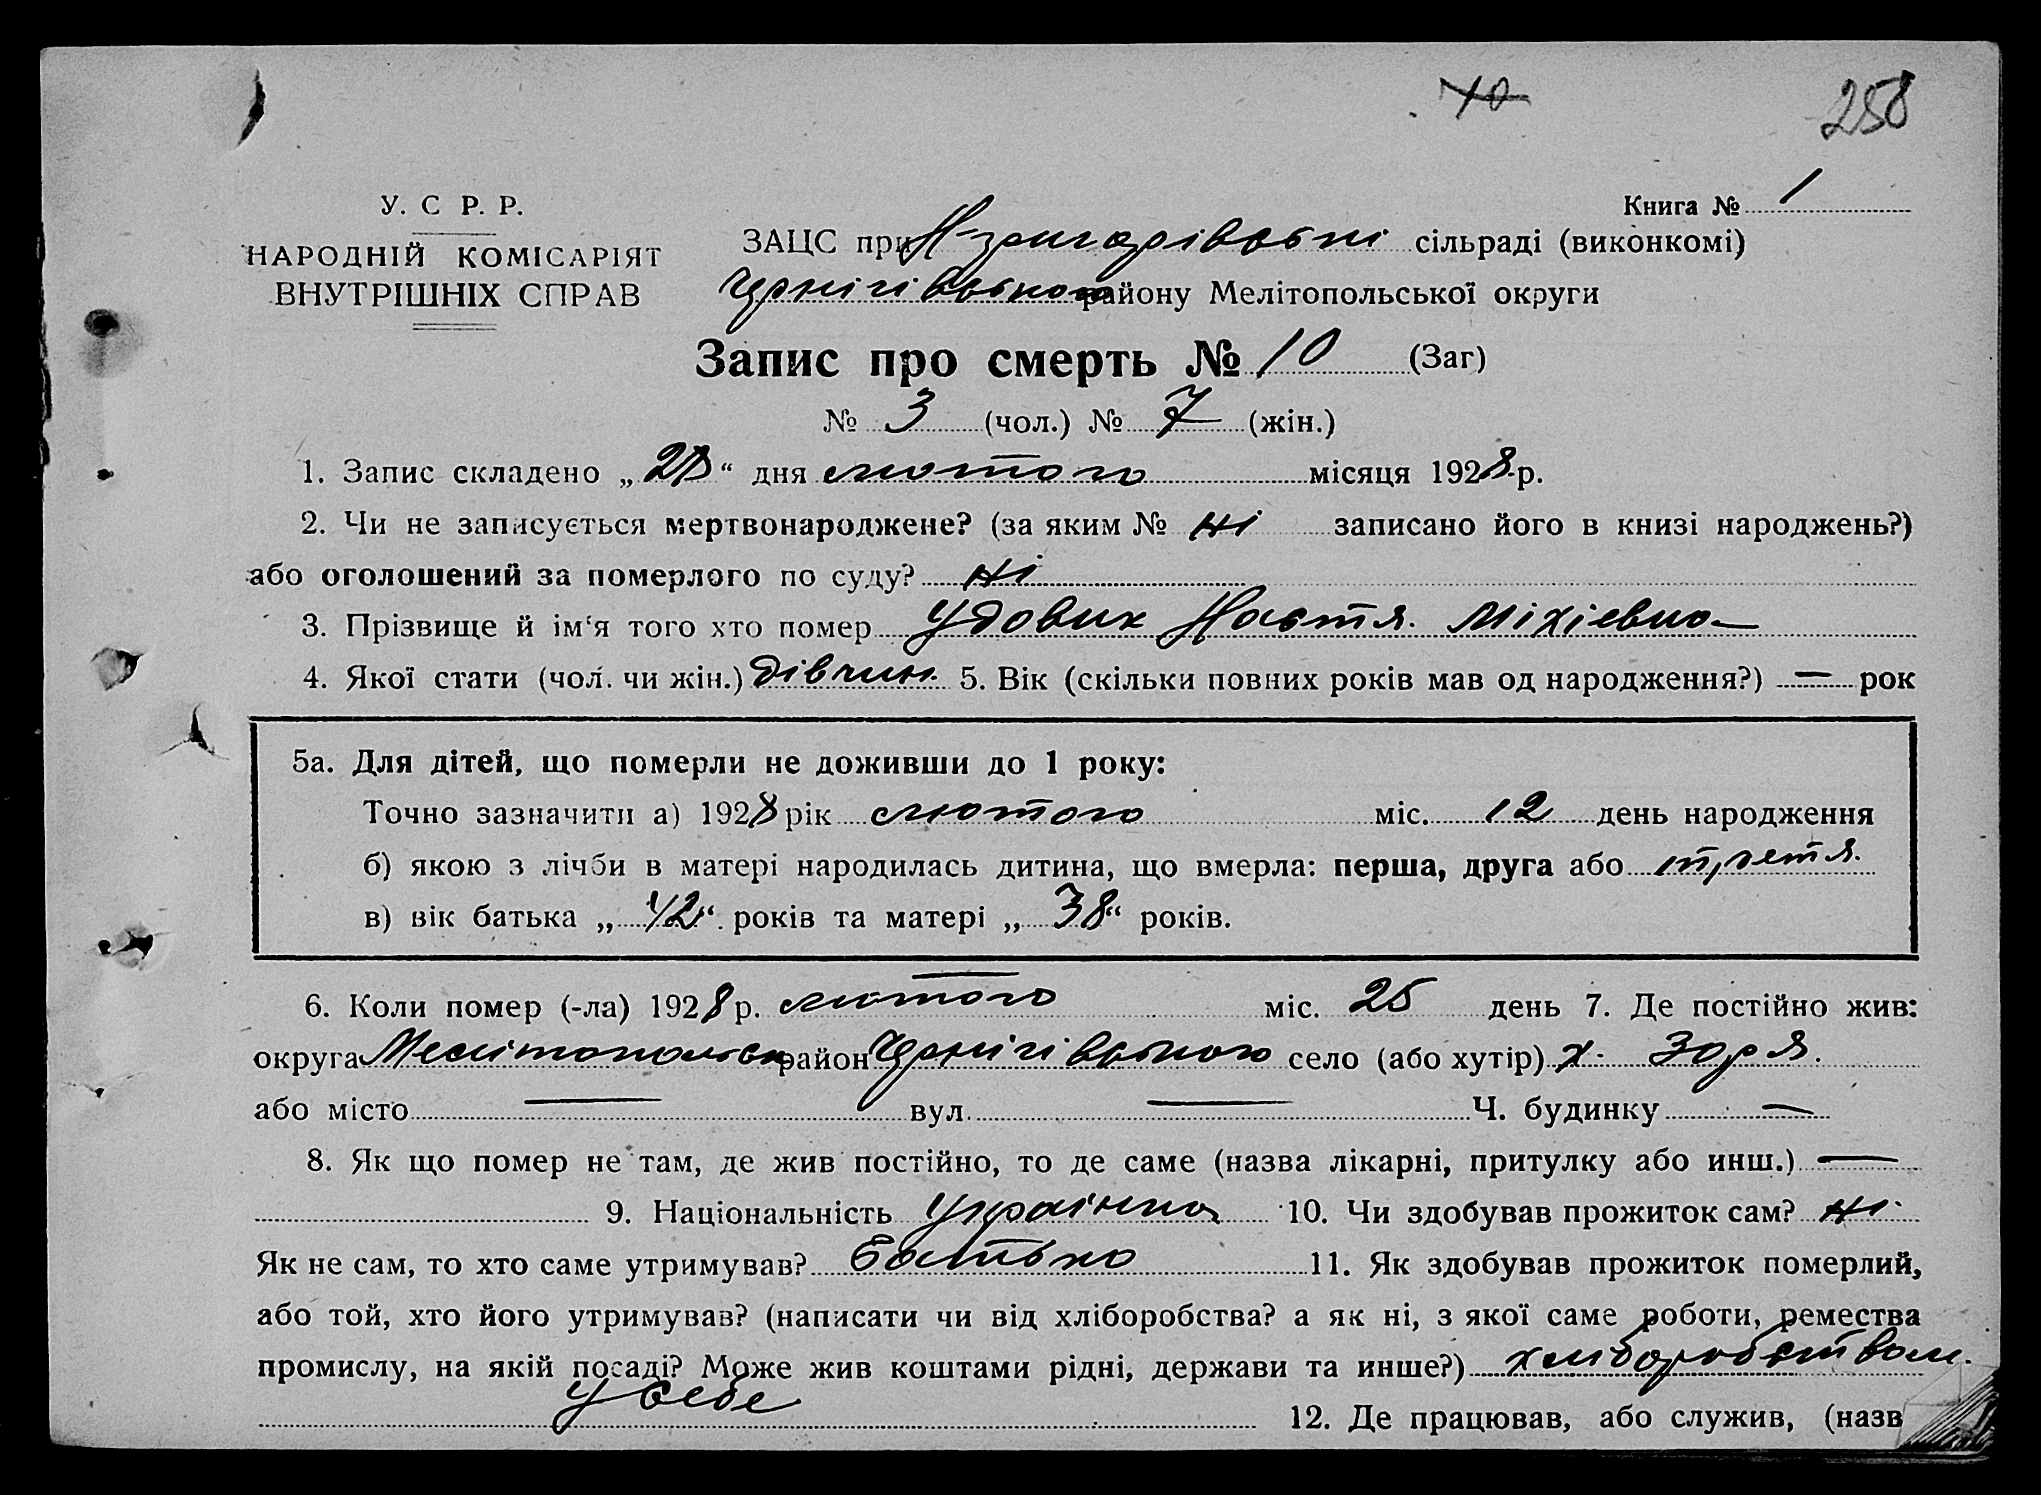 10
258
У. С Р. Р.
Книга № 1
НАРОДНІЙ КОМІСАРІЯТ
ЗАЦС при сільраді (виконкомі)
ВНУТРІШНІХ СПРАВ
Чернігівського району Мелітопольської округи
Запис про смерть № 10 (Заг)
№ 3 (чол.) № 7 (жін.)
1. Запис складено „28“ дня лютого місяця 1928 р.
2. Чи не записується мертвонароджене? (за яким № ні записано його в книзі народжень?)
або оголошений за померлого по суду? ні
3. Прізвище й ім‘я того хто помер Удовик Настя Міхієвна
4. Якої стати (чол. чи жін.) дівчин. 5. Вік (скільки повних років мав од народження?) — рок
5а. Для дітей, що померли не доживши до 1 року:
Точно зазначити а) 1928 рік лютого міс. 12 день народження
б) якою з лічби в матері народилась дитина, що вмерла: перша, друга або третя.
в) вік батька „42“ років та матері „38“ років.
6. Коли помер (-ла) 1928 р. лютого міс. 25 день 7. Де постійно жив:
округа Мелітопольськ район Чернігівського село (або хутір) х. Зоря.
або місто — вул. — Ч. будинку —
8. Як що помер не там, де жив постійно, то де саме (назва лікарні, притулку або инш.) —
9. Національність Українка 10. Чи здобував прожиток сам? ні
Як не сам, то хто саме утримував? Батько 11. Як здобував прожиток померлий,
або той, хто його утримував? (написати чи від хліборобства? а як ні, з якої саме роботи, ремества
промислу, на якій посаді? Може жив коштами рідні, держави та инше?) хліборобством.
у себе
12. Де працював, або служив, (назв